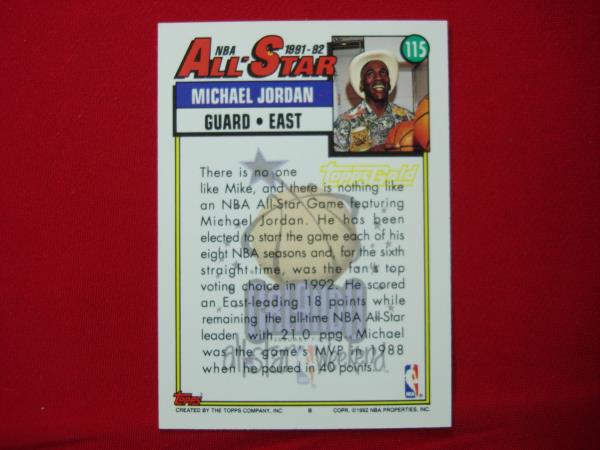 NBA 1991-92
ALL-STAR
115
MICHAEL JORDAN
GUARD • EAST
Topps Gold
There is no one
like Mike, and there is nothing like
an NBA All-Star Game featuring
Michael Jordan. He has been
elected to start the game each of his
eight NBA seasons and, for the sixth
straight time, was the fan's top
voting choice in 1992. He scored
an East-leading 18 points while
remaining the all-time NBA All-Star
leader with 21.0 ppg. Michael
was the game's MVP in 1988
when he poured in 40 points.
ORLANDO
all-star weekend
NBA
TOPPS
CREATED BY THE TOPPS COMPANY, INC. B COPR. ©1992 NBA PROPERTIES, INC.